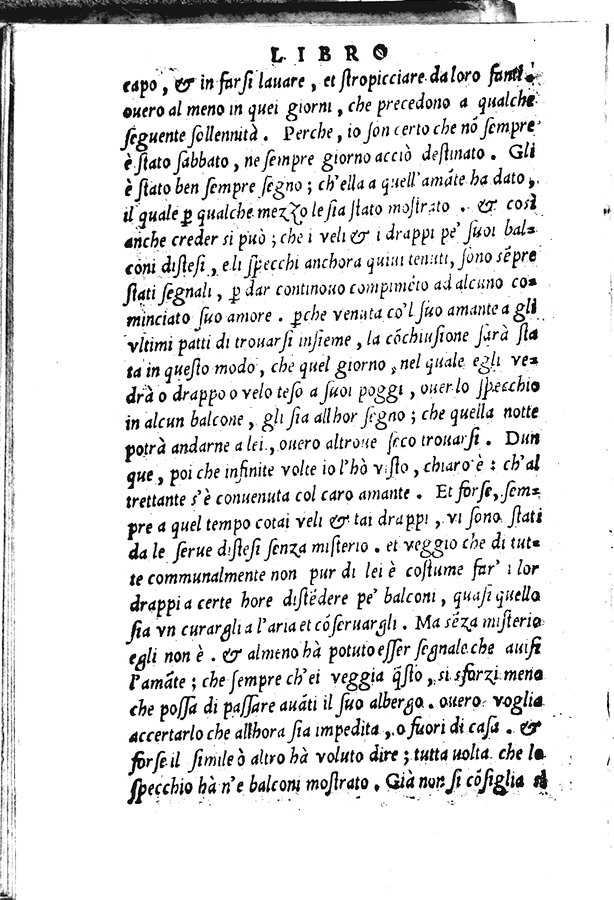 LIBRO
capo, & in farsi lauare, et stropicciare da loro fanti:
ouero al meno in quei giorni, che precedono a qualche
seguente sollennità. Perche, io son certo che nõ sempre
è stato sabbato, ne sempre giorno acciò destinato. Gli
è stato ben sempre segno; ch'ella a quell'amãte ha dato,
il quale ꝑ qualche mezzo le sia stato mostrato. & così
anche creder si può; che i veli & i drappi pe' suoi bal=
coni distesi, e li specchi anchora quiui tenuti, sono sẽpre
stati segnali, ꝑ dar continouo compimẽto ad alcuno co=
minciato suo amore. ꝑche venuta co'l suo amante a gli
vltimi patti di trouarsi insieme, la cõchiusione sarà sta
ta in questo modo, che quel giorno, nel quale egli ve=
drà o drappo o velo teso a suoi poggi, ouer lo specchio
in alcun balcone, gli sia allhor segno; che quella notte
potrà andarne a lei, ouero altroue seco trouarsi. Dun
que, poi che infinite volte io l'hò visto, chiaro è: ch'al
trettante s'è conuenuta col caro amante. Et forse, sem=
pre a quel tempo cotai veli & tai drappi, vi sono stati
da le serue distesi senza misterio. et veggio che di tut=
te communalmente non pur di lei è costume far' i lor
drappi a certe hore distẽdere pe' balconi, quasi quello
sia vn curargli a l'aria et cõseruargli. Ma sẽza misterio
egli non è. & almeno hà potuto esser segnale che auisi
l'amãte; che sempre ch'ei veggia q̃sto, si sforzi meno
che possa di passare auãti il suo albergo. ouero voglia
accertarlo che allhora sia impedita, o fuori di casa. &
forse il simile ò altro hà voluto dire; tutta uolta che lo
specchio hà n'e balconi mostrato. Già non si cõsiglia